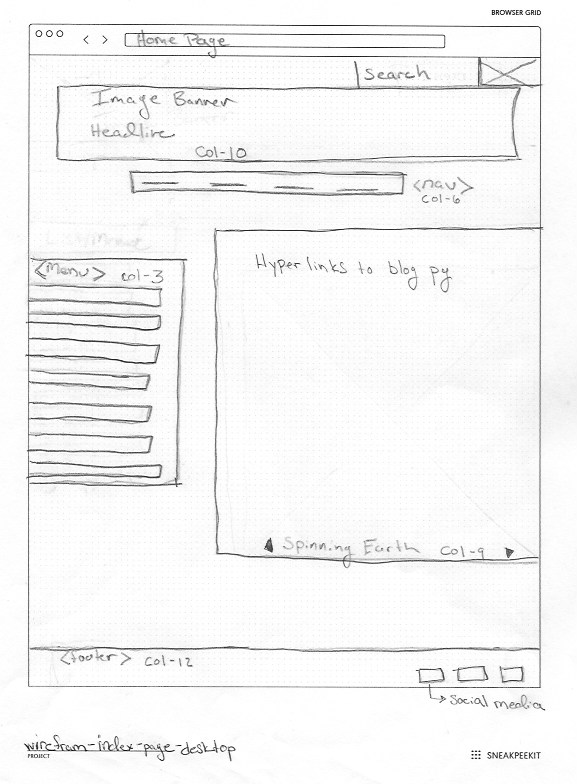 BROWSER GRID
Home Page
Search
Image Banner
Headline
Col-10
<nav>
Col-6
<Menu> Col-3
Hyperlinks to blog pg
Spinning Earth Col-9
<footer> Col-12
Social media
wirefram-index-page-desktop
PROJECT
SNEAKPEEKIT